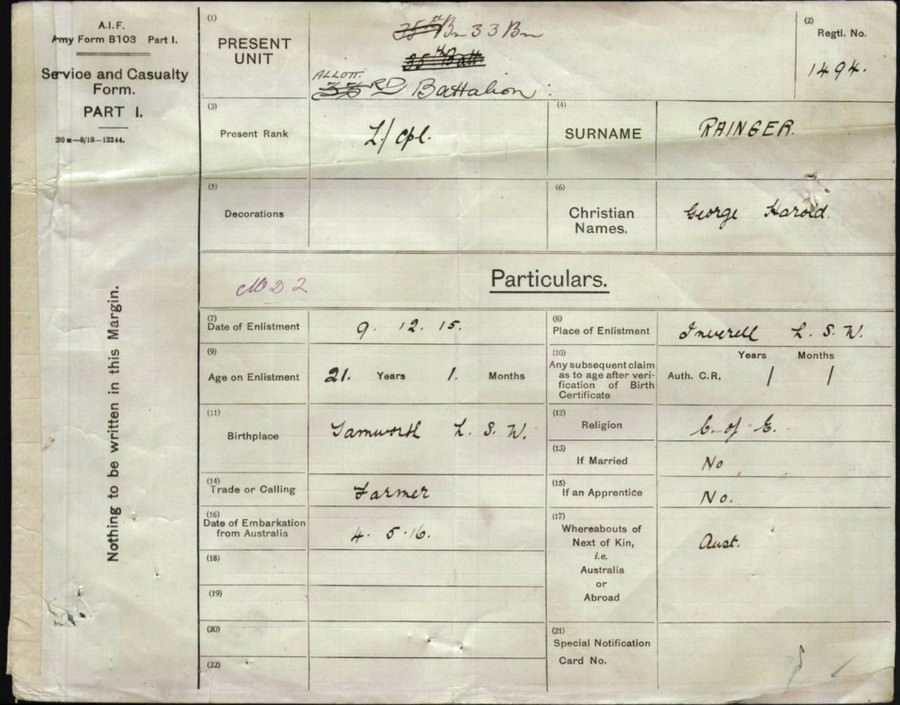 A.I.F.
Army Form B103 Part I.
Service and Casualty
Form.
PART I.
20 m—8/18—12244.
Nothing to be written in this Margin.
(1)
PRESENT
UNIT
35th Bn 33 Bn
35th Batt
ALLOTT.
RD Battalion :
(2)
Regtl. No.
1494.
(3)
Present Rank
L/Cpl.
(4)
SURNAME
RAINGER.
(5)
Decorations
(6)
Christian
Names.
George Harold.
MD2
Particulars.
(7)
Date of Enlistment
9. 12. 15.
(8)
Place of Enlistment
Inverell N. S. W.
(9)
Age on Enlistment
21. Years 1. Months
(10)
Any subsequent claim
as to age after veri-
fication of Birth
Certificate
Years Months
Auth. C.R, / /
(11)
Birthplace
Tamworth N. S. W.
(12)
Religion
C. of E.
(13)
If Married
No
(14)
Trade or Calling
Farmer
(15)
If an Apprentice
No.
(16)
Date of Embarkation
from Australia
4. 5. 16.
(17)
Whereabouts of
Next of Kin,
i.e.
Australia
or
Abroad
Aust.
(18)
(19)
(20)
(21)
Special Notification
Card No.
(22)